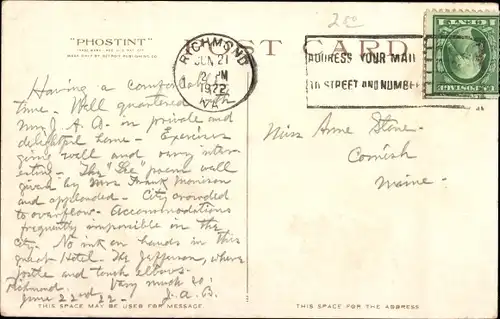 "PHOSTINT"
POST CARD
2.50
RICHMOND
JUN 21
2 PM
1922
VA.
ADDRESS YOUR MAIL
TO STREET AND NUMBER
Having a comfortable
time - Well quartered with
Mrs J. A. Q. in private and
delightful home - Exercises
going well and very inter-
esting. The "She" poem well
given by Mrs Frank Morrison
and applauded - City crowded
to overflow. Accommodations
frequently impossible in the
City. No ink on hands in this
great Hotel. The Jefferson, where
jostle and touch elbows.
Richmond. Very much so:
June 22nd, 22 - J. A. B.
Miss Anne Stone -
Cornish
Maine -
THIS SPACE MAY BE USED FOR MESSAGE.
THIS SPACE FOR THE ADDRESS